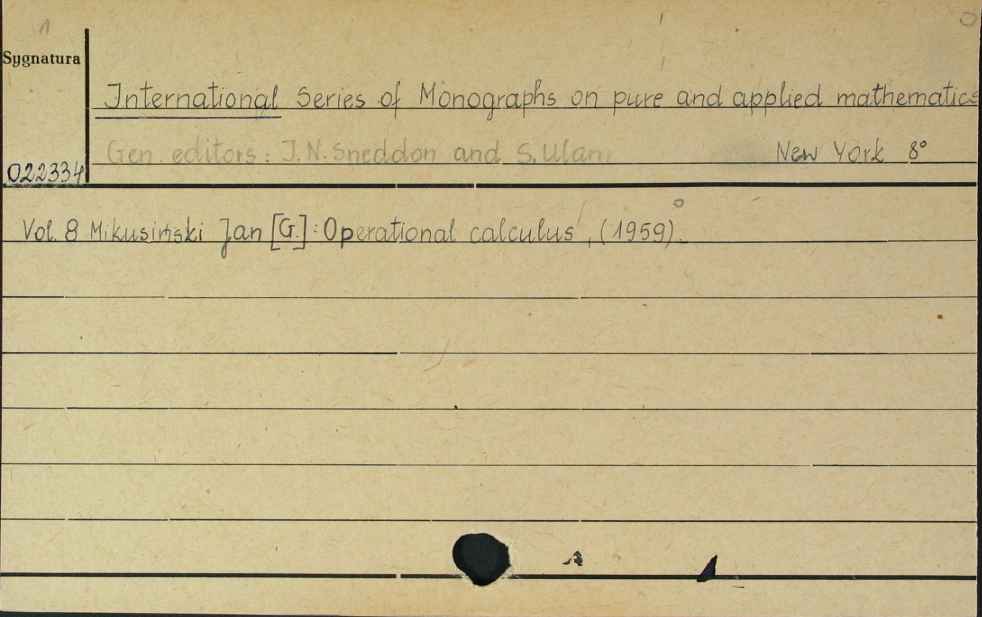 Sygnatura
International Series of Monographs on pure and applied mathematics
Gen. editors: J.N. Sneddon and S. Ulam
New York 8°
022334
Vol. 8 Mikusiński Jan [G.]: Operational calculus, (1959).